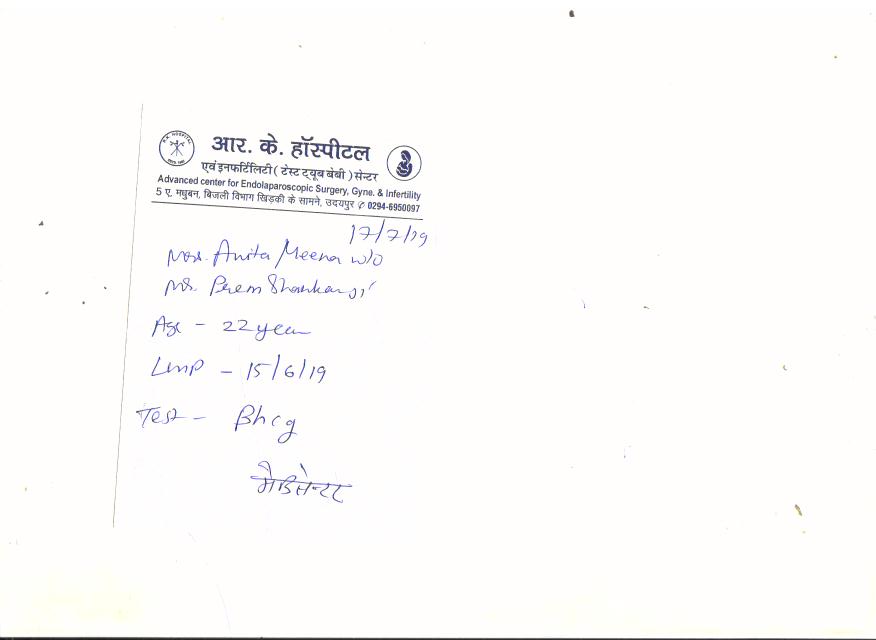 आर. के. हॉस्पीटल
एवं इनफर्टिलिटी ( टेस्ट ट्यूब बेबी ) सेन्टर
Advanced center for Endolaparoscopic Surgery, Gyne. & Infertility
5 ए, मधुबन, बिजली विभाग खिड़की के सामने, उदयपुर ✆ 0294-6950097
17/7/19
Mrs. Anita Meena w/o
Mr. Prem Shankar ji
Age - 22 year
LMP - 15/6/19
Test - Bhcg
मेडिसेन्टर